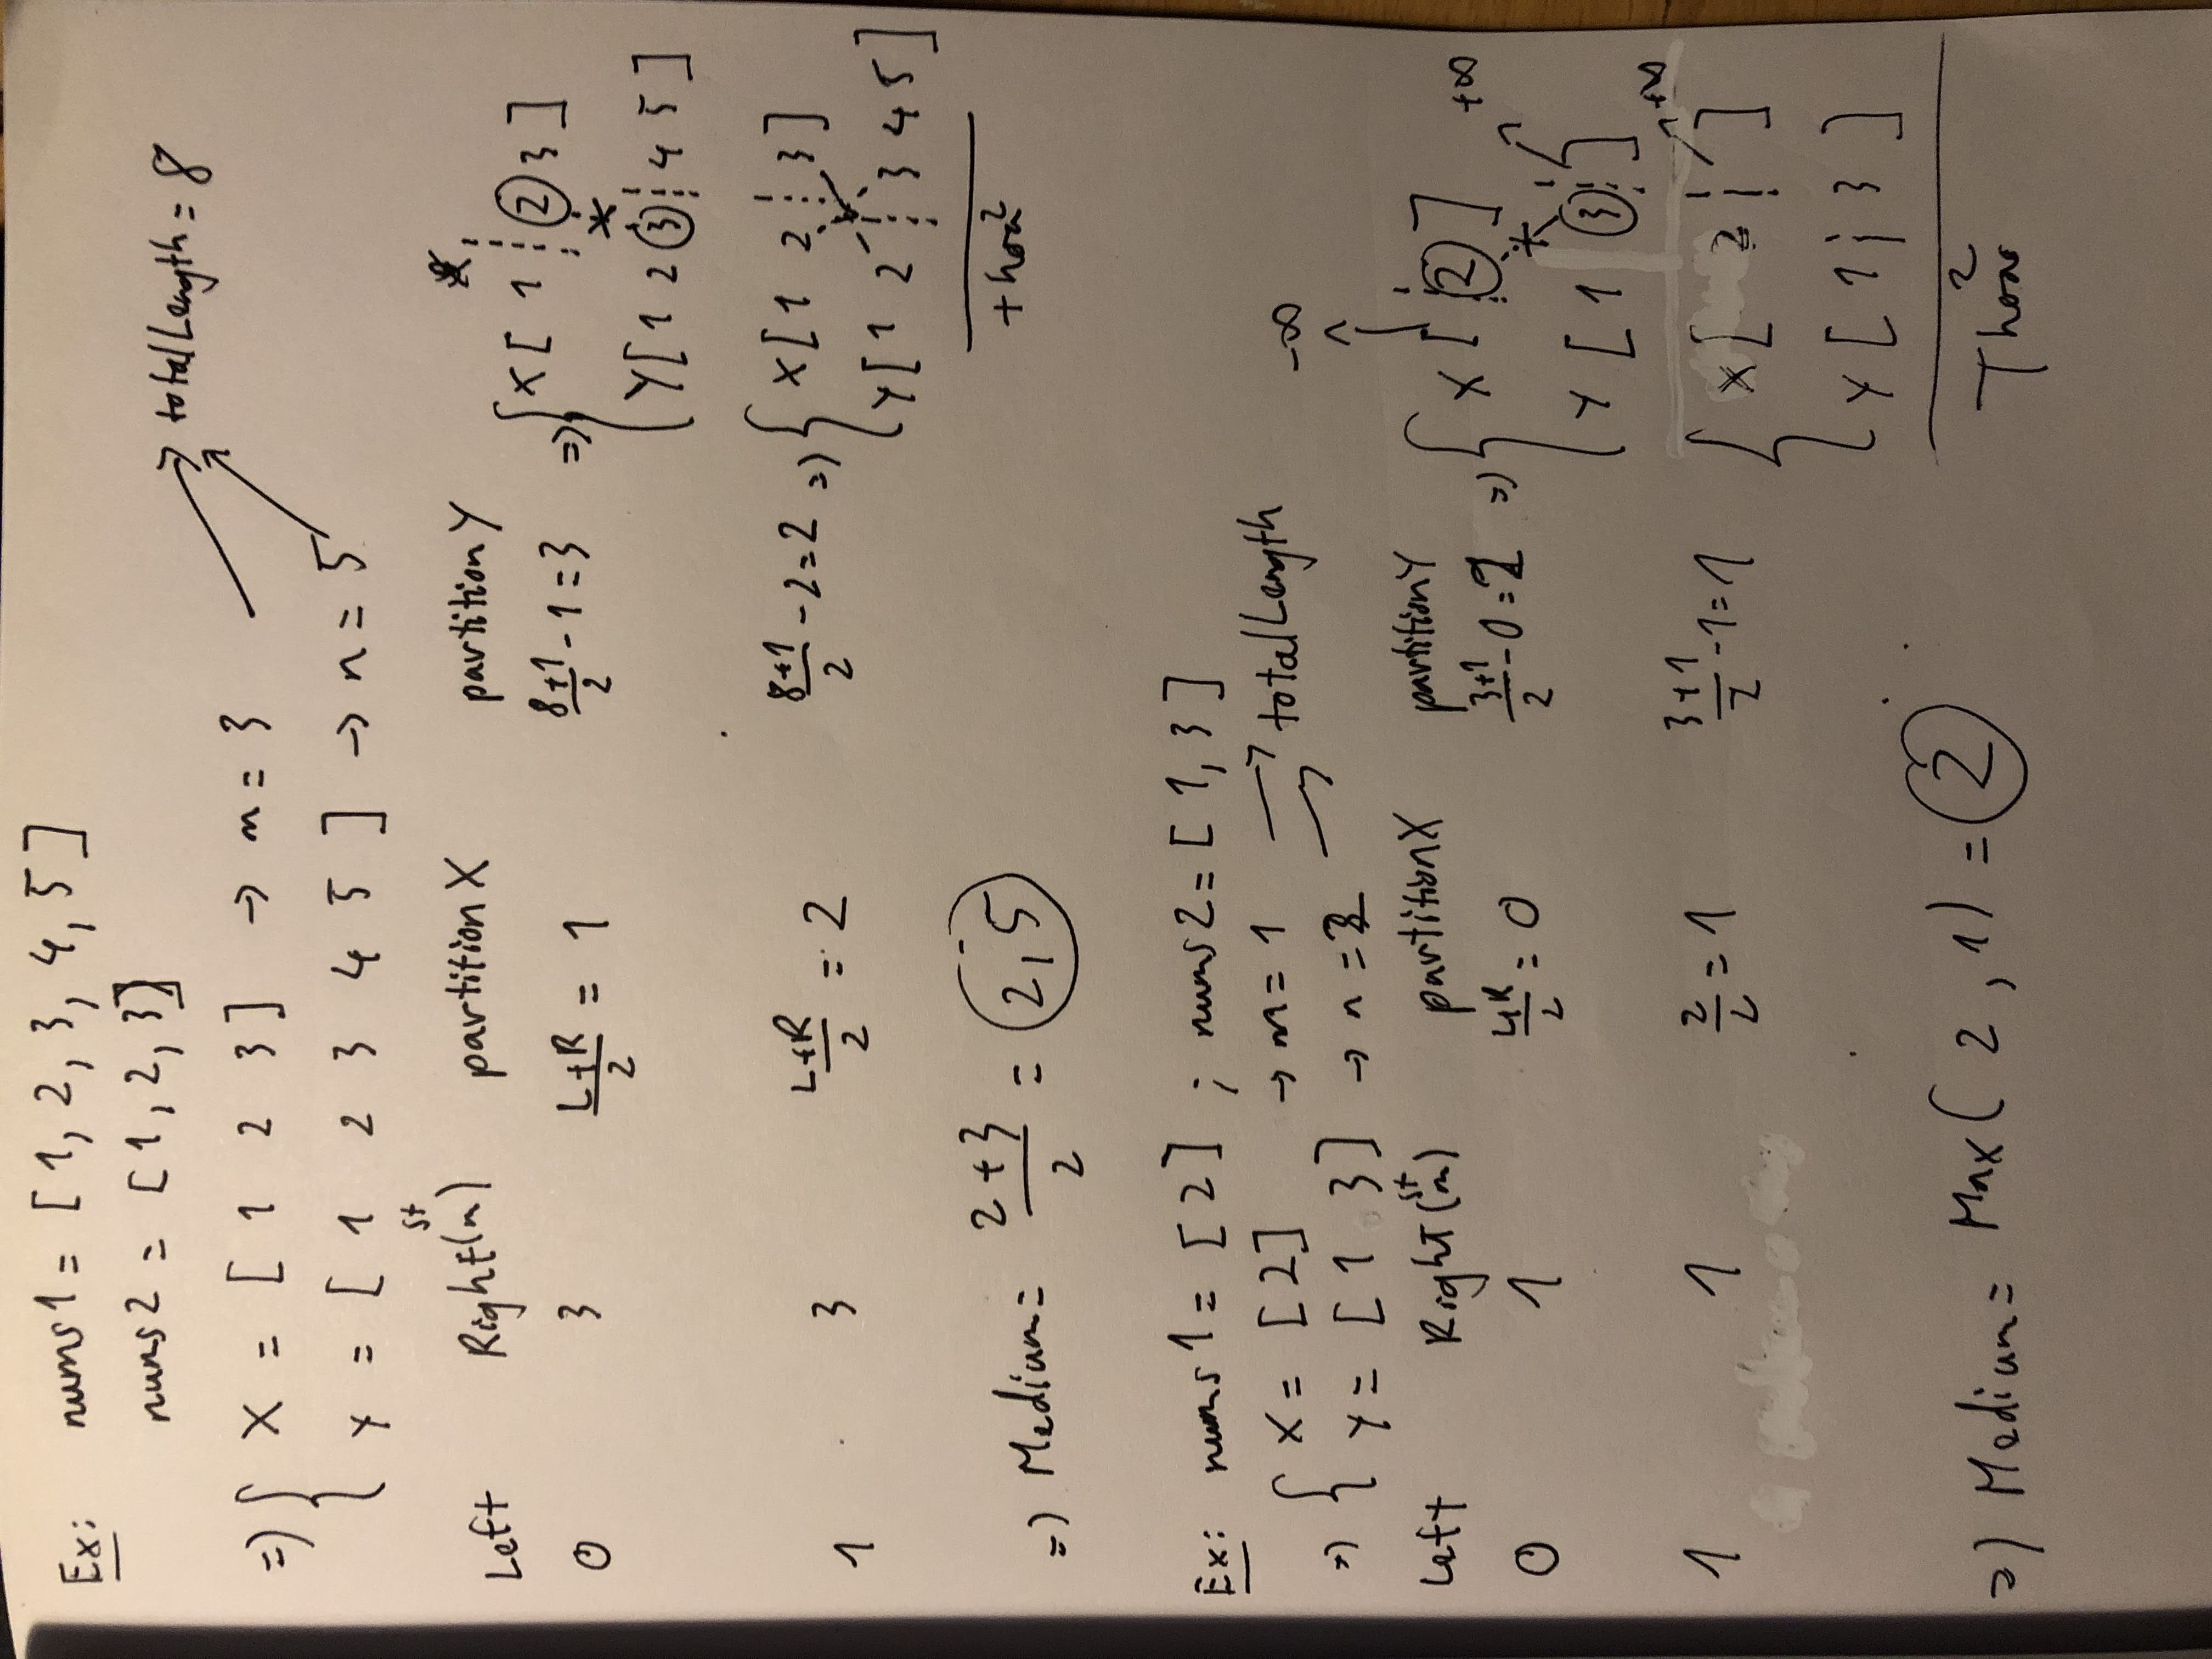 Ex: nums1 = [ 1, 2, 3, 4, 5 ]
nums2 = [ 1, 2, 3 ]
totalLength = 8
=> { X = [ 1 2 3 ] → m = 3
Y = [ 1 2 3 4 5 ] → n = 5
st
Left Right (m) partitionX partitionY
0 3 L+R/2 = 1 8+1/2 - 1 = 3 => { X [ 1 ¦ 2 3 ]
Y [ 1 2 3 ¦ 4 5 ]
1 3 L+R/2 = 2 8+1/2 - 2 = 2 => { X [ 1 2 ¦ 3 ]
Y [ 1 2 ¦ 3 4 5 ]
thoả
=> Medium = 2+3/2 = 2,5
Ex: nums1 = [ 2 ] ; nums2 = [ 1, 3 ]
=> { X = [ 2 ] → m = 1 → totalLength
Y = [ 1 3 ] → n = 2 →
-∞
st
Left Right (m) partitionX partitionY
0 1 L+R/2 = 0 3+1/2 - 0 = 2 => { X [ ¦ 2 ] +∞
Y [ 1 3 ¦ ]
+∞
1 1 2/2 = 1 3+1/2 - 1 = 1 { X [ 2 ¦ ]
Y [ 1 ¦ 3 ]
Thoả
=> Medium = Max ( 2, 1 ) = 2